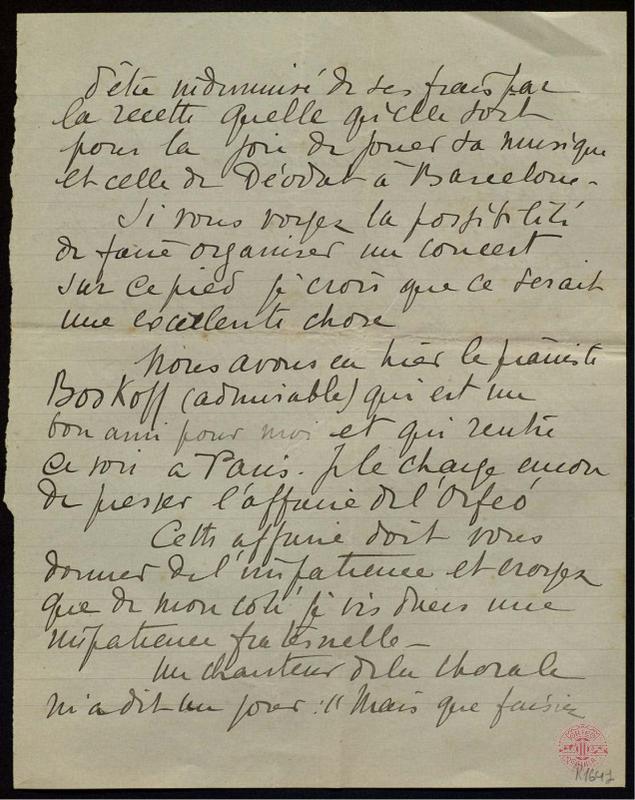 d'être indemnisé de ses frais par
la recette quelle qu'elle soit
pour la joie de jouer sa musique
et celle de Déodat à Barcelone -
Si vous voyez la possibilité
de faire organiser un concert
sur ce pied je crois que ce serait
une excellente chose
Nous avons eu hier le pianiste
Boskoff (admirable) qui est un
bon ami pour moi et qui rentre
ce soir a Paris. Je le charge encore
de presser l'affaire de l'Orfeó
Cette affaire doit vous
donner de l'impatience et croyez
que de mon coté je vis dans une
impatience fraternelle -
Un chanteur de la Chorale
m'a dit un jour : "Mais que faisiez
R.1647